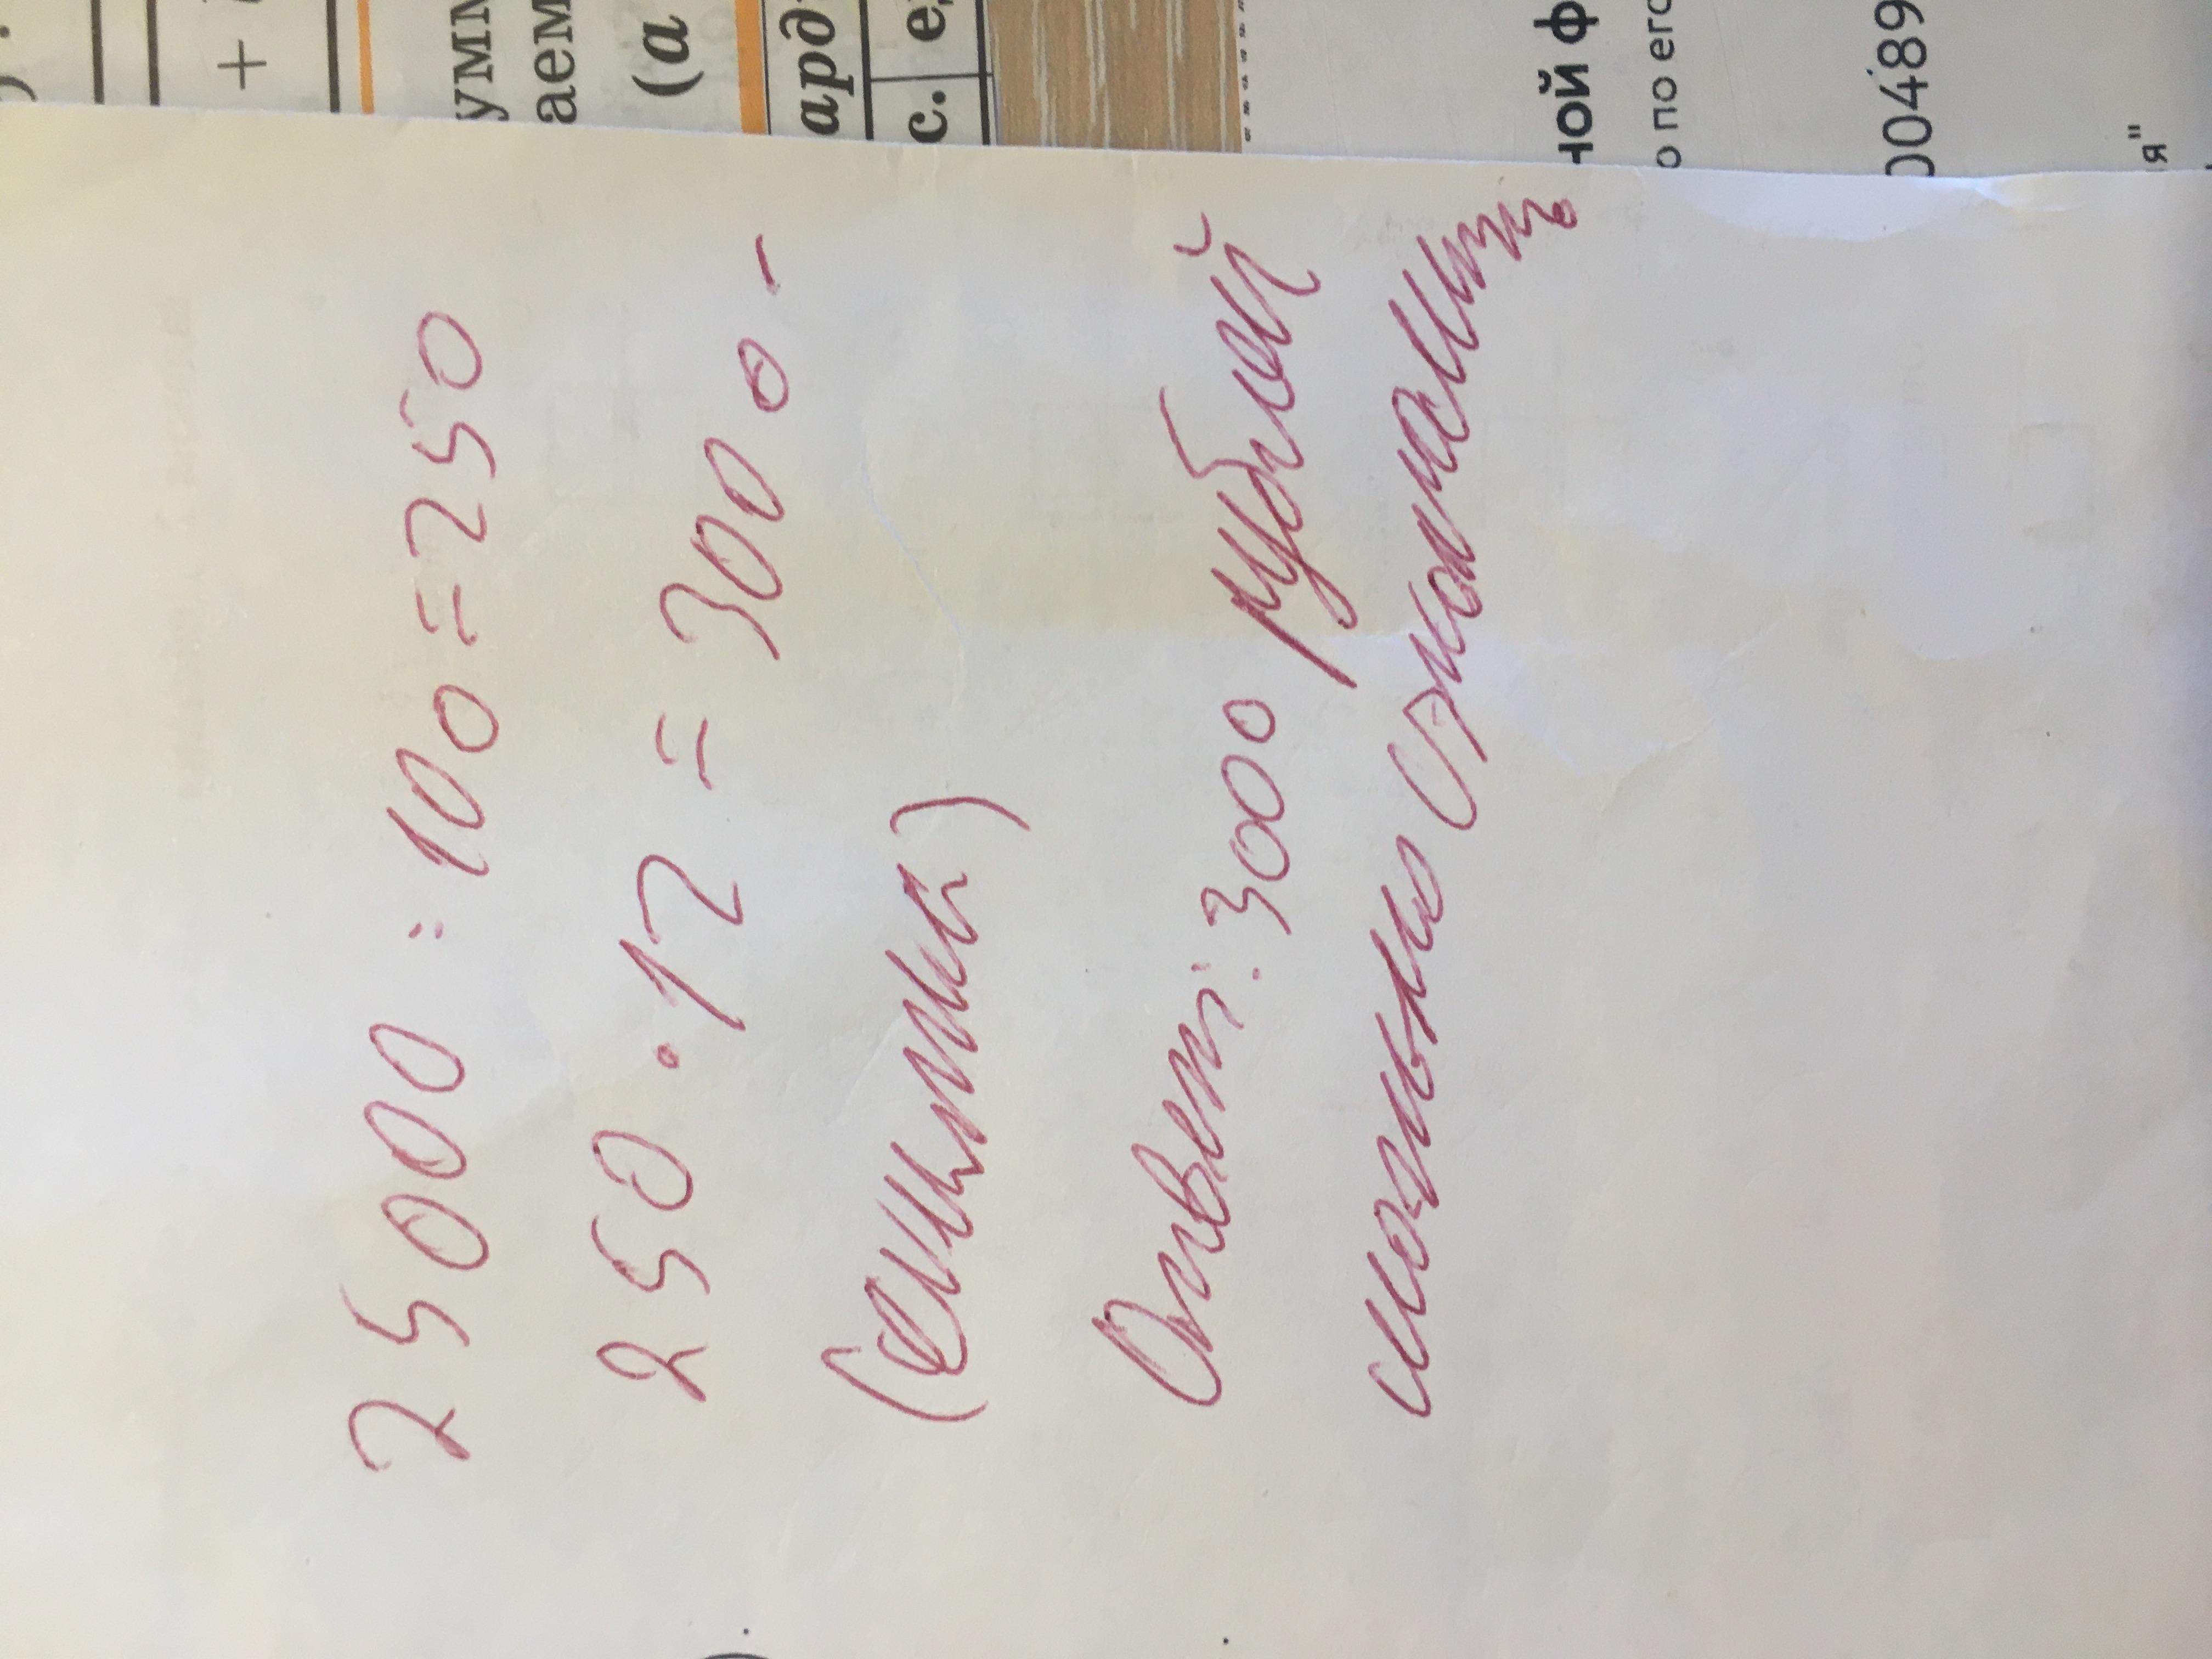 25000 : 100 = 250
250 · 12 = 3000 -
(скидка)
Ответ: 3000 рублей
можно сэкономить
+
умм
аем
(а
ард
с. е
ной ф
о по его
00489
я"